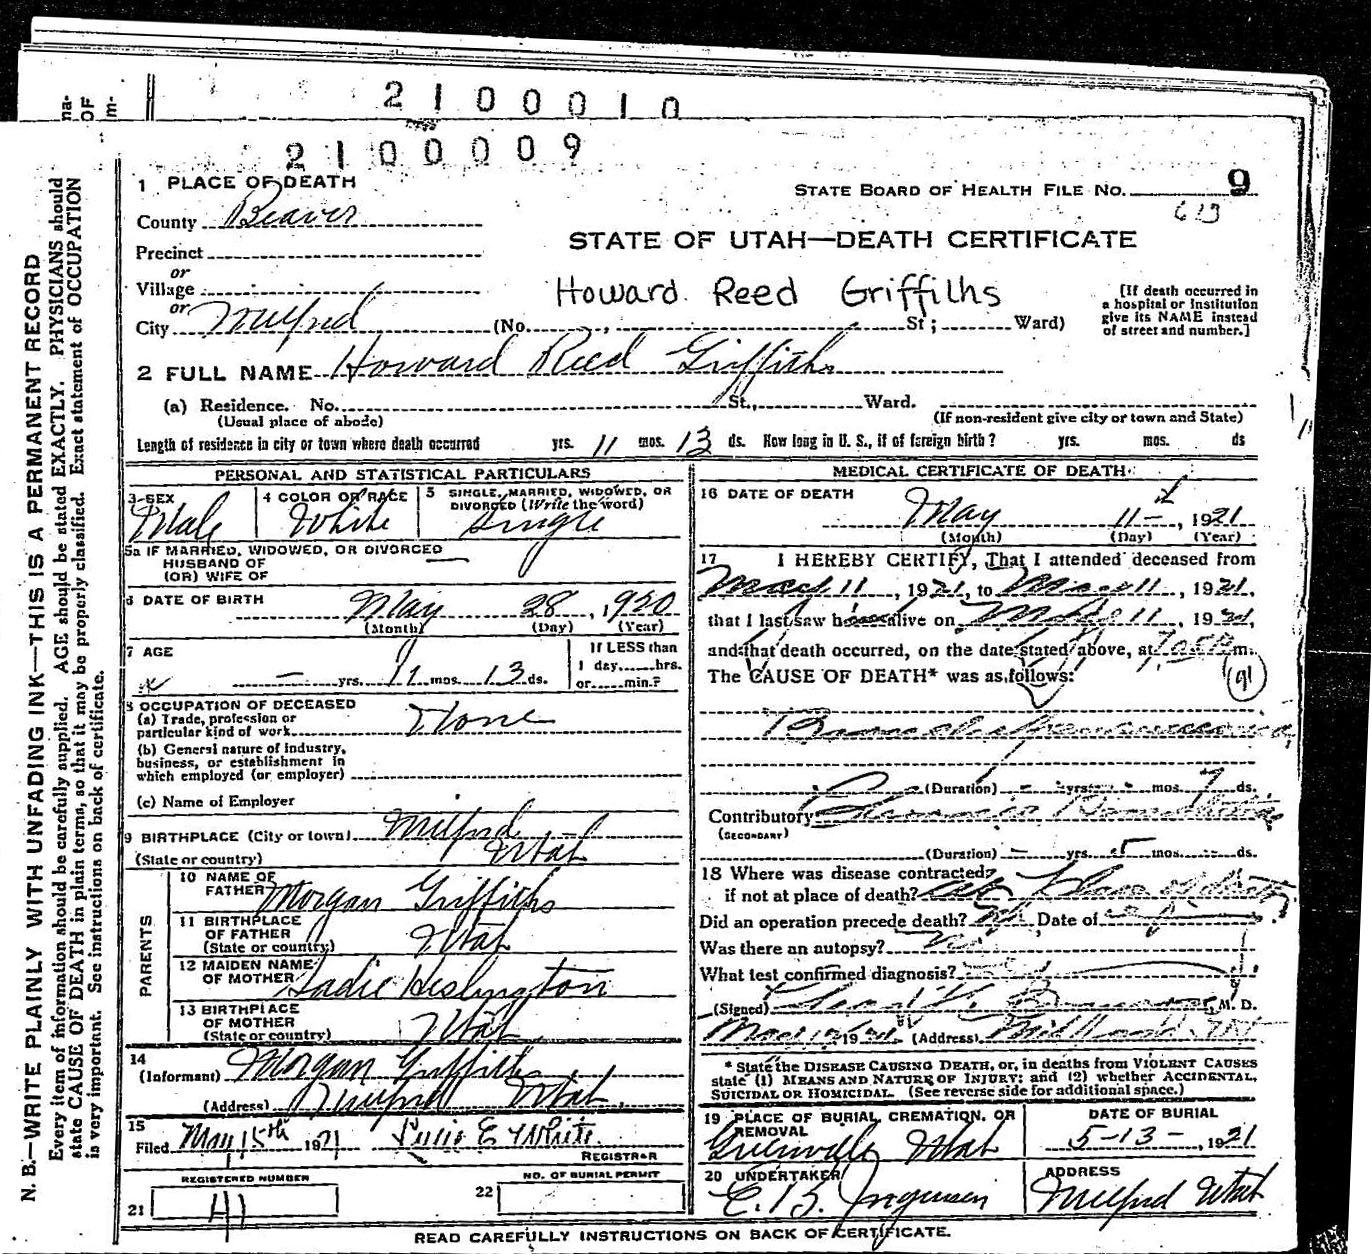 na-
OF
m-
2100010
2100009
N. B.—WRITE PLAINLY WITH UNFADING INK—THIS IS A PERMANENT RECORD
Every item of information should be carefully supplied. AGE should be stated EXACTLY. PHYSICIANS should
state CAUSE OF DEATH in plain terms, so that it may be properly classified. Exact statement of OCCUPATION
is very important. See instructions on back of certificate.
1 PLACE OF DEATH
STATE BOARD OF HEALTH FILE NO. 9
613
County Beaver
STATE OF UTAH—DEATH CERTIFICATE
Precinct
or
Village
Howard Reed Griffiths
[If death occurred in
a hospital or institution
give its NAME instead
of street and number.]
or
City Milford (No. , St; Ward)
2 FULL NAME Howard Reed Griffiths
(a) Residence. No. St., Ward.
(Usual place of abode) (If non-resident give city or town and State)
Length of residence in city or town where death occurred yrs. 11 mos. 13 ds. How long in U. S., if of foreign birth? yrs. mos. ds
PERSONAL AND STATISTICAL PARTICULARS
3 SEX
Male
4 COLOR OR RACE
White
5 SINGLE, MARRIED, WIDOWED, OR
DIVORCED (Write the word)
Single
5a IF MARRIED, WIDOWED, OR DIVORCED
HUSBAND OF
(OR) WIFE OF
6 DATE OF BIRTH
May 28, 1920
(Month) (Day) (Year)
7 AGE
– yrs. 11 mos. 13 ds.
If LESS than
1 day......hrs.
or......min.?
8 OCCUPATION OF DECEASED
(a) Trade, profession or
particular kind of work None
(b) General nature of industry,
business, or establishment in
which employed (or employer)
(c) Name of Employer
9 BIRTHPLACE (City or town) Milford
(State or country) Utah
PARENTS
10 NAME OF
FATHER Morgan Griffiths
11 BIRTHPLACE
OF FATHER
(State or country) Utah
12 MAIDEN NAME
OF MOTHER Sadie Heslington
13 BIRTHPLACE
OF MOTHER
(State or country) Utah
14
(Informant) Morgan Griffiths
(Address) Milford Utah.
15
Filed May 15th 1921 Lucie E White
REGISTRAR
REGISTERED NUMBER
21 41
NO. OF BURIAL PERMIT
22
MEDICAL CERTIFICATE OF DEATH
16 DATE OF DEATH
May 11–, 1921
(Month) (Day) (Year)
17 I HEREBY CERTIFY, That I attended deceased from
May 11, 1921, to May 11, 1921,
that I last saw h alive on May 11, 1921,
and that death occurred, on the date stated above, at m.
The CAUSE OF DEATH* was as follows:
91
Broncho pneumonia
(Duration) – yrs. – mos. 7 ds.
Contributory Chronic
(SECONDARY)
(Duration) – yrs. 5 mos. – ds.
18 Where was disease contracted
if not at place of death? at place of death
Did an operation precede death? no Date of
Was there an autopsy? no
What test confirmed diagnosis?
(Signed) M. D.
May 1921 (Address) Milford Ut
* State the DISEASE CAUSING DEATH, or, in deaths from VIOLENT CAUSES
state (1) MEANS AND NATURE OF INJURY; and (2) whether ACCIDENTAL,
SUICIDAL OR HOMICIDAL. (See reverse side for additional space.)
19 PLACE OF BURIAL, CREMATION, OR
REMOVAL
Greenville Utah
DATE OF BURIAL
5-13-, 1921
20 UNDERTAKER
E. B. Jorgensen
ADDRESS
Milford Utah
READ CAREFULLY INSTRUCTIONS ON BACK OF CERTIFICATE.